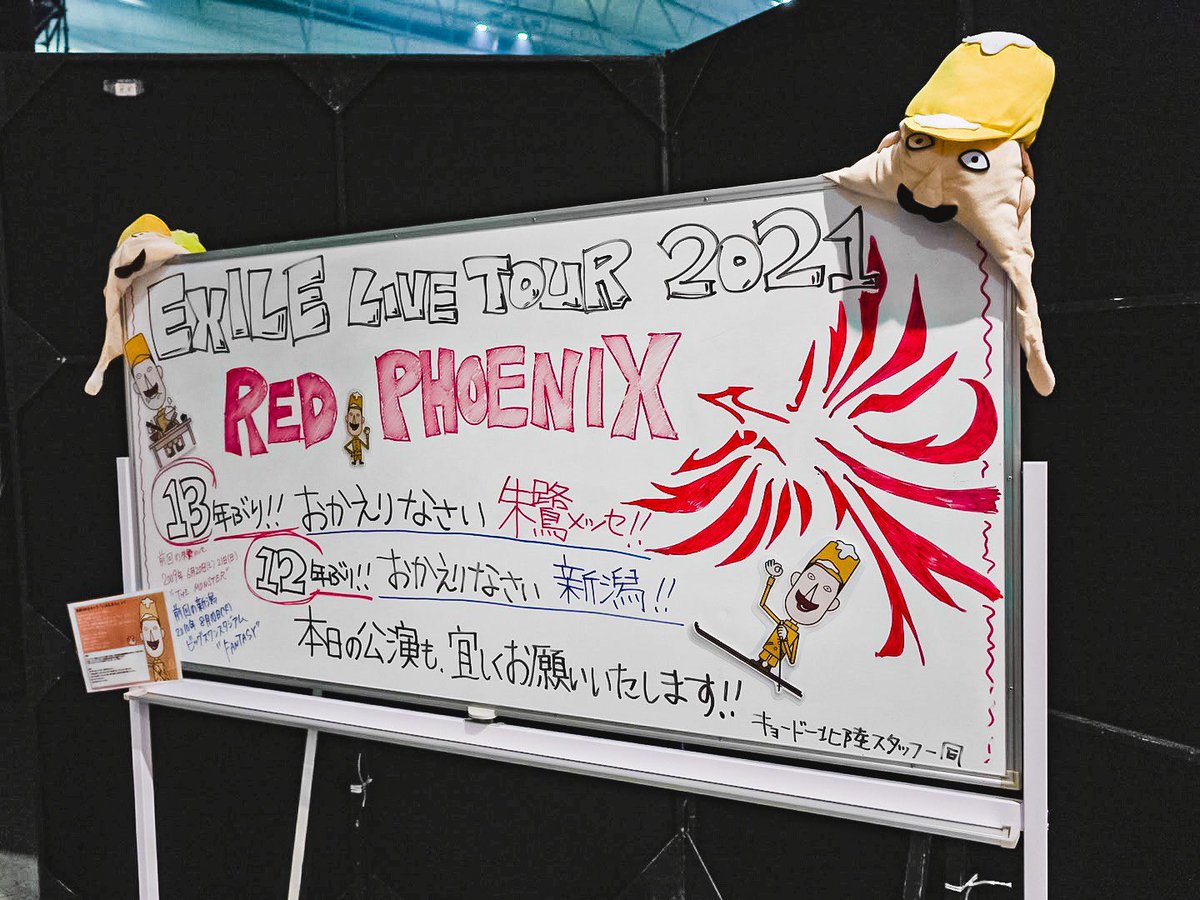 EXILE LIVE TOUR 2021
RED PHOENIX
13年ぶり!! おかえりなさい 朱鷺メッセ!!
12年ぶり!! おかえりなさい 新潟!!
前回の朱鷺メッセ
2009年 6月20日(土) 21日(日)
"THE MONSTER"
前回の新潟
ビッグスワンスタジアム
"FANTASY"
本日の公演も、宜しくお願いいたします!!
キョードー北陸スタッフ一同